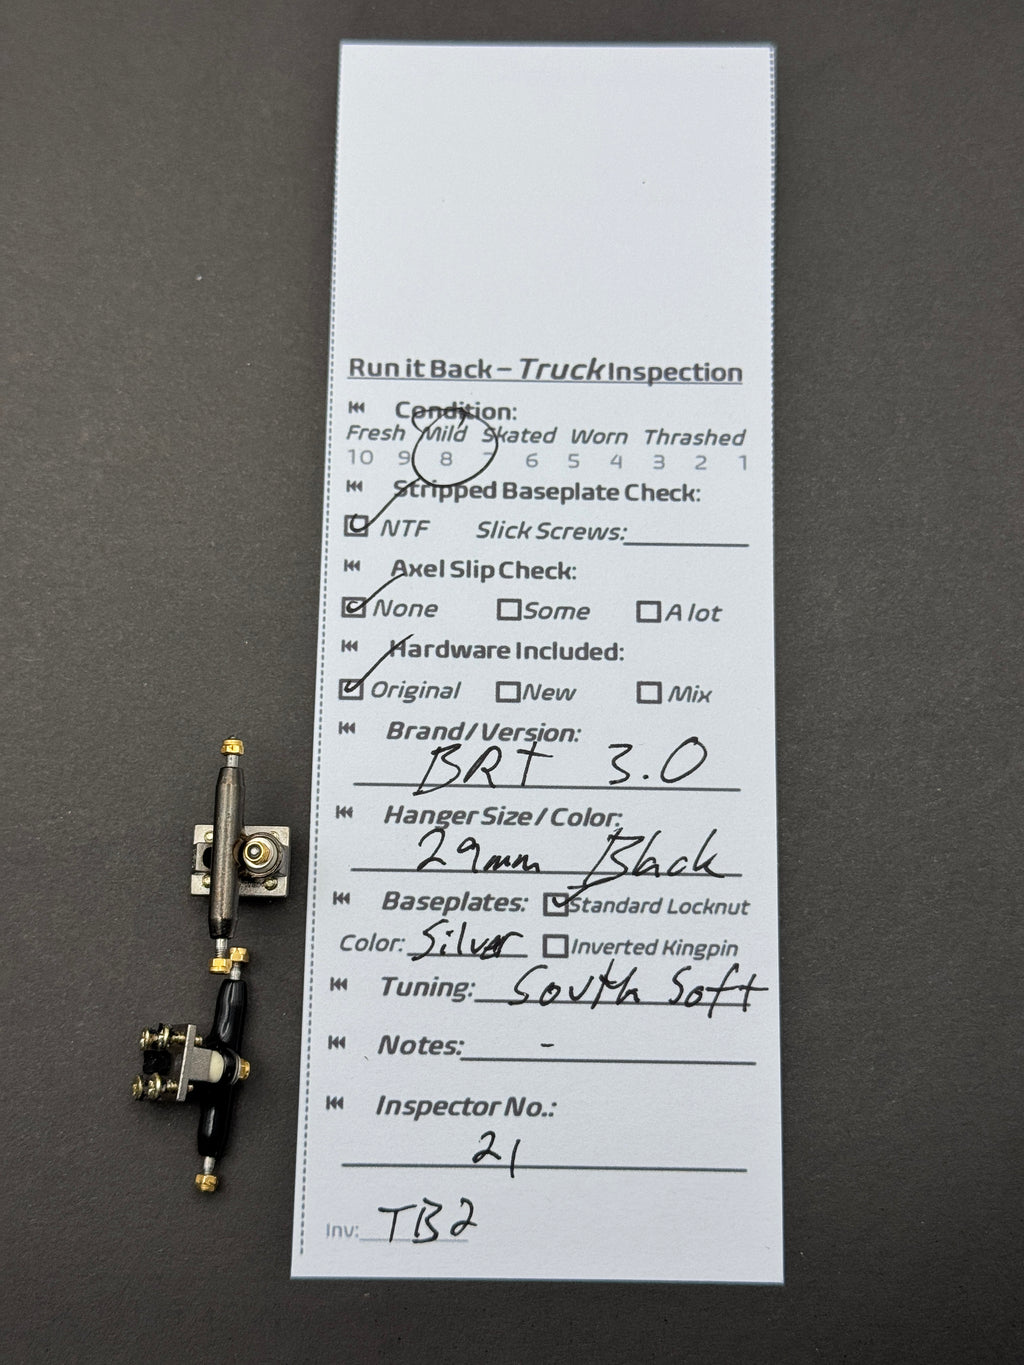 Run it Back – Truck Inspection
Condition:
Fresh Mild Skated Worn Thrashed
10 9 8 7 6 5 4 3 2 1
Stripped Baseplate Check:
NTF Slick Screws:
Axel Slip Check:
None Some A lot
Hardware Included:
Original New Mix
Brand/Version:
BRT 3.0
Hanger Size/Color:
29mm Black
Baseplates: Standard Locknut
Color: Silver Inverted Kingpin
Tuning: South Soft
Notes: -
Inspector No.:
21
Inv: TB2